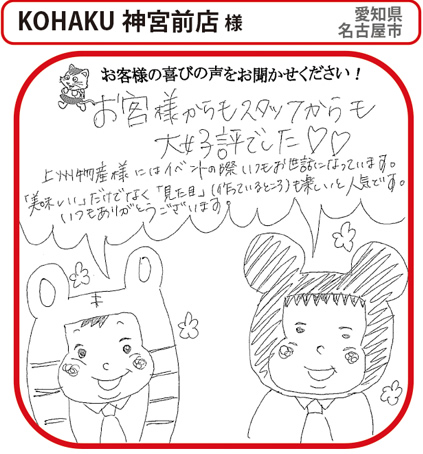 KOHAKU 神宮前店 様
愛知県
名古屋市
お客様の喜びの声をお聞かせください！
お客様からもスタッフからも
大好評でした♡♡
上州物産様にはイベントの際いつもお世話になっています。
「美味しい」だけでなく「見た目」(作っているところ)も楽しいと人気です。
いつもありがとうございます。